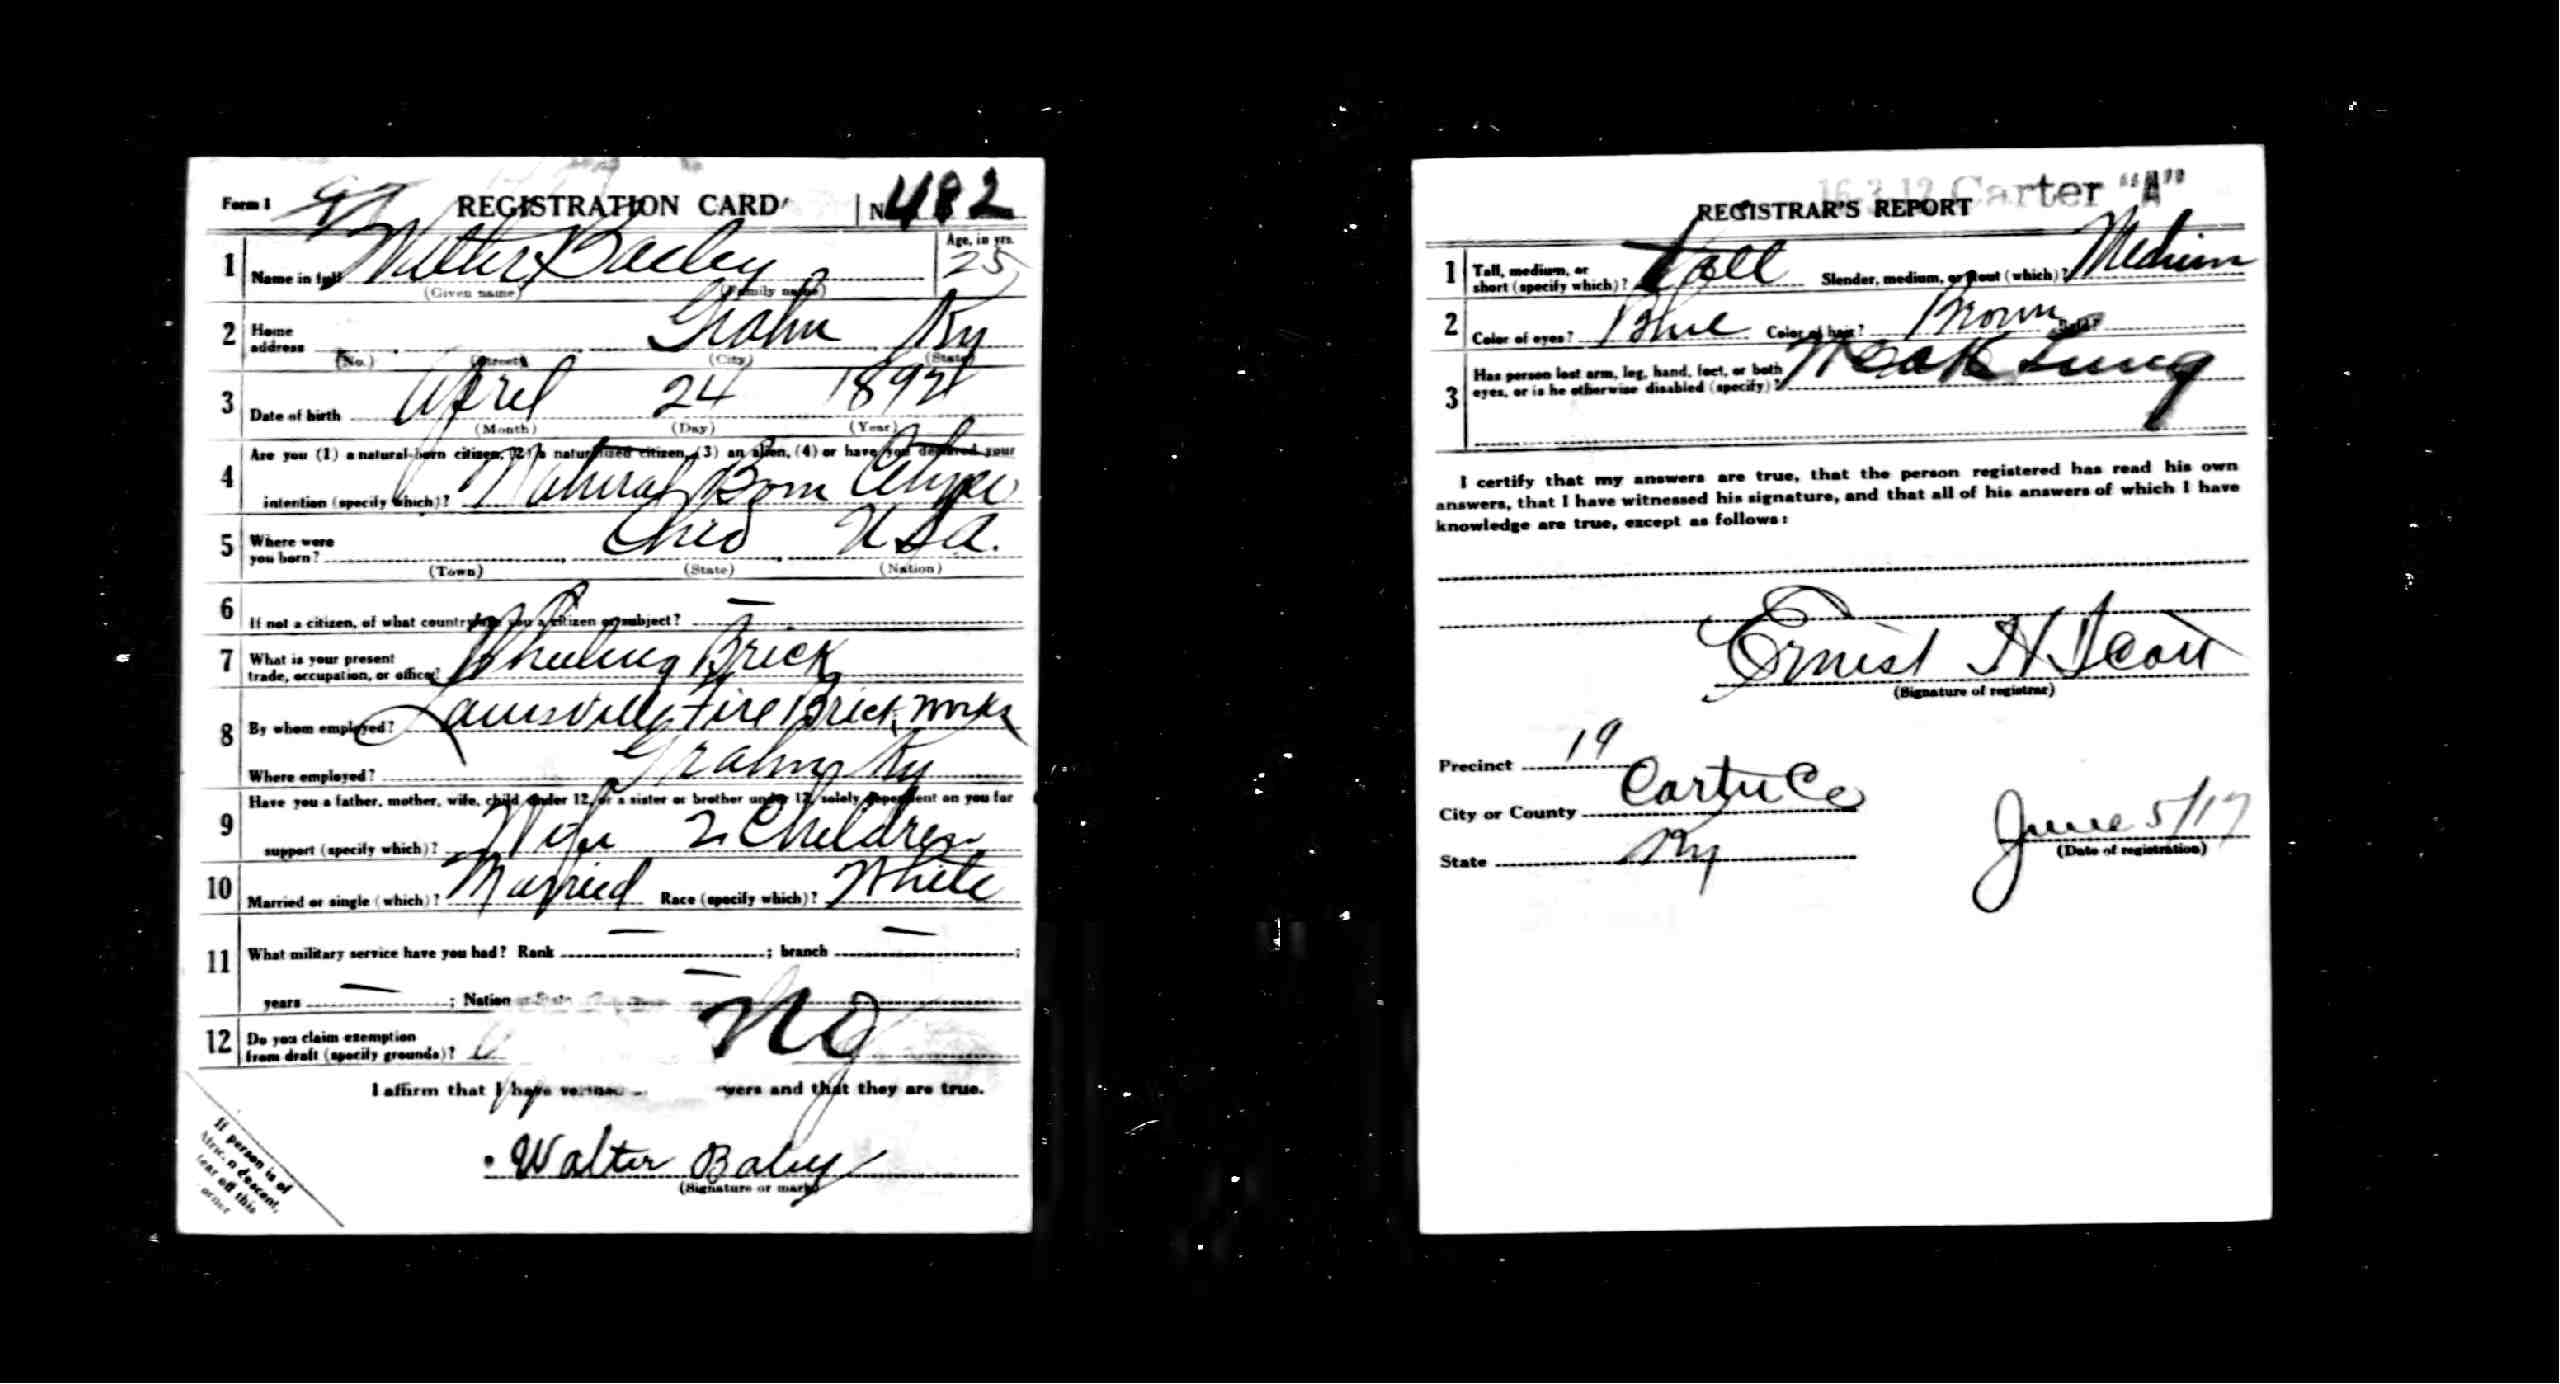 Form 1 REGISTRATION CARD No 482
1 Name in full Walter Bailey Age, in yrs. 25
(Given name) (Family name)
2 Home address Grahn Ky
(No.) (Street) (City) (State)
3 Date of birth April 24 1892
(Month) (Day) (Year)
4 Are you (1) a natural-born citizen, (2) a naturalized citizen, (3) an alien, (4) or have you declared your
intention (specify which)? Natural Born
5 Where were you born? Ohio U.S.A.
(Town) (State) (Nation)
6 If not a citizen, of what country are you a citizen or subject? —
7 What is your present trade, occupation, or office? Wheeling Brick
8 By whom employed? Louisville Fire Brick Works
Where employed? Grahn, Ky
9 Have you a father, mother, wife, child under 12, or a sister or brother under 12, solely dependent on you for
support (specify which)? Wife 2 Children
10 Married or single (which)? Married Race (specify which)? White
11 What military service have you had? Rank — ; branch — ;
years — ; Nation or State —
12 Do you claim exemption from draft (specify grounds)? No
I affirm that I have verified answers and that they are true.
Walter Baley
(Signature or mark)
If person is of
African descent,
tear off this
corner
16-3-12 Carter "A"
REGISTRAR'S REPORT
1 Tall, medium, or short (specify which)? Tall Slender, medium, or stout (which)? Medium
2 Color of eyes? Blue Color of hair? Brown Bald?
3 Has person lost arm, leg, hand, foot, or both eyes, or is he otherwise disabled (specify)? Weak Lung
I certify that my answers are true, that the person registered has read his own
answers, that I have witnessed his signature, and that all of his answers of which I have
knowledge are true, except as follows:
Ernest H Scott
(Signature of registrar)
Precinct 19
City or County Carter Co
State Ky
June 5/17
(Date of registration)